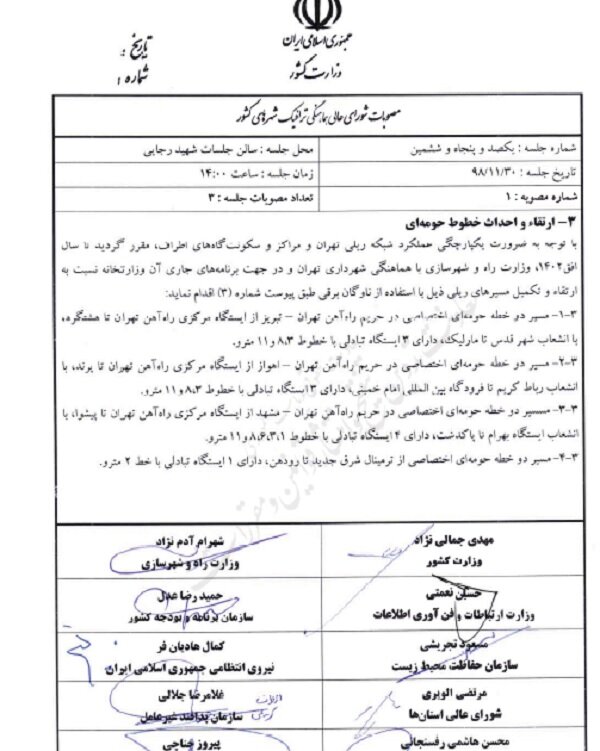 جمهوری اسلامی ایران
وزارت کشور
تاریخ :
شماره :
مصوبات شورای عالی هماهنگی ترافیک شهرهای کشور
شماره جلسه : یکصد و پنجاه و ششمین
محل جلسه : سالن جلسات شهید رجایی
تاریخ جلسه : ۹۸/۱۱/۳۰
زمان جلسه : ساعت ۱۴:۰۰
شماره مصوبه : ۱
تعداد مصوبات جلسه : ۳
۳- ارتقاء و احداث خطوط حومه‌ای
با توجه به ضرورت یکپارچگی عملکرد شبکه ریلی تهران و مراکز و سکونت‌گاه‌های اطراف، مقرر گردید تا سال
افق۱۴۰۲، وزارت راه و شهرسازی با هماهنگی شهرداری تهران و در جهت برنامه‌های جاری آن وزارتخانه نسبت به
ارتقاء و تکمیل مسیرهای ریلی ذیل با استفاده از ناوگان برقی طبق پیوست شماره (۳) اقدام نماید:
۳-۱- مسیر دو خطه حومه‌ای اختصاصی در حریم راه‌آهن تهران – تبریز از ایستگاه مرکزی راه‌آهن تهران تا هشتگرد،
با انشعاب شهر قدس تا مارلیک، دارای ۳ ایستگاه تبادلی با خطوط ۸،۳ و ۱۱ مترو.
۳-۲- مسیر دو خطه حومه‌ای اختصاصی در حریم راه‌آهن تهران – اهواز از ایستگاه مرکزی راه‌آهن تهران تا پرند، با
انشعاب رباط کریم تا فرودگاه بین المللی امام خمینی، دارای ۳ ایستگاه تبادلی با خطوط ۸،۳ و ۱۱ مترو.
۳-۳- مسیر دو خطه حومه‌ای اختصاصی در حریم راه‌آهن تهران – مشهد از ایستگاه مرکزی راه‌آهن تهران تا پیشوا، با
انشعاب ایستگاه بهرام تا پاکدشت، دارای ۴ ایستگاه تبادلی با خطوط ۸،۶،۳،۱ و ۱۱ مترو.
۳-۴- مسیر دو خطه حومه‌ای اختصاصی از ترمینال شرق جدید تا رودهن، دارای ۱ ایستگاه تبادلی با خط ۲ مترو.
مهدی جمالی نژاد
وزارت کشور
شهرام آدم نژاد
وزارت راه و شهرسازی
حسین نعمتی
وزارت ارتباطات و فن آوری اطلاعات
حمید رضا عدل
سازمان برنامه و بودجه کشور
مسعود تجریشی
سازمان حفاظت محیط زیست
کمال هادیان فر
نیروی انتظامی جمهوری اسلامی ایران
مرتضی الویری
شورای عالی استان‌ها
غلامرضا جلالی
سازمان پدافند غیرعامل
محسن هاشمی رفسنجانی
پیروز حناچی